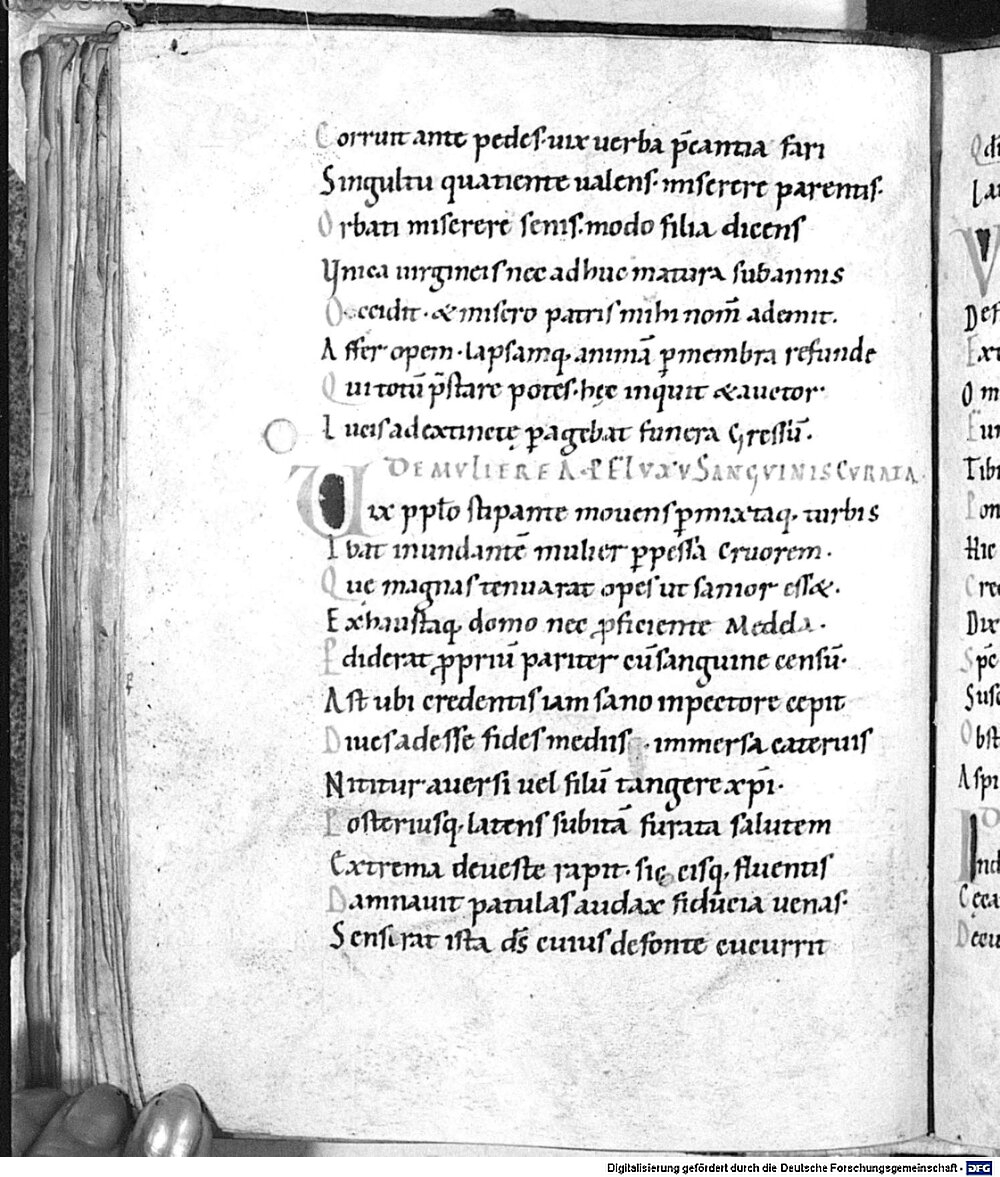 Corruit ante pedes· uix uerba p̄cantia fari
Singultu quatiente ualens· miserere parentis·
Orbati miserere senis· modo filia dicens
Vnica uirgineis nec adhuc matura sub annis
Occidit· & misero patris mihi nom̄ ademit.
Affer opem· lapsamq, animā p̱ membra refunde
Qui totū p̄stare potes· hęc inquit & auctor·
Lucis ad extinctę p̱agebat funera Gressū·
DE MVLIERE A PFLVXV SANGVINIS CVRATA
Vix pplo stipante mouens p̱mixtaq, turbis
Ibat inundantē mulier p̱pessa Cruorem·
Quę magnas tenuarat opes ut sanior ess&·
Exhaustaq, domo nec ꝓficiente Medela·
Ediderat ꝓpriū pariter cū sanguine censū·
Ast ubi credentis iam sano in pectore cepit
Diues adesse fides mediis· immersa cateruis
Nititur auersi uel filū tangere xp̄i·
Posteriusq, latens subitā furata salutem
Extrema de ueste rapit· sic eisq, fluentis
Damnauit patulas audax fiducia uenas·
Senserat ista d̄s cuius de fonte cucurrit
Digitalisierung gefördert durch die Deutsche Forschungsgemeinschaft - DFG